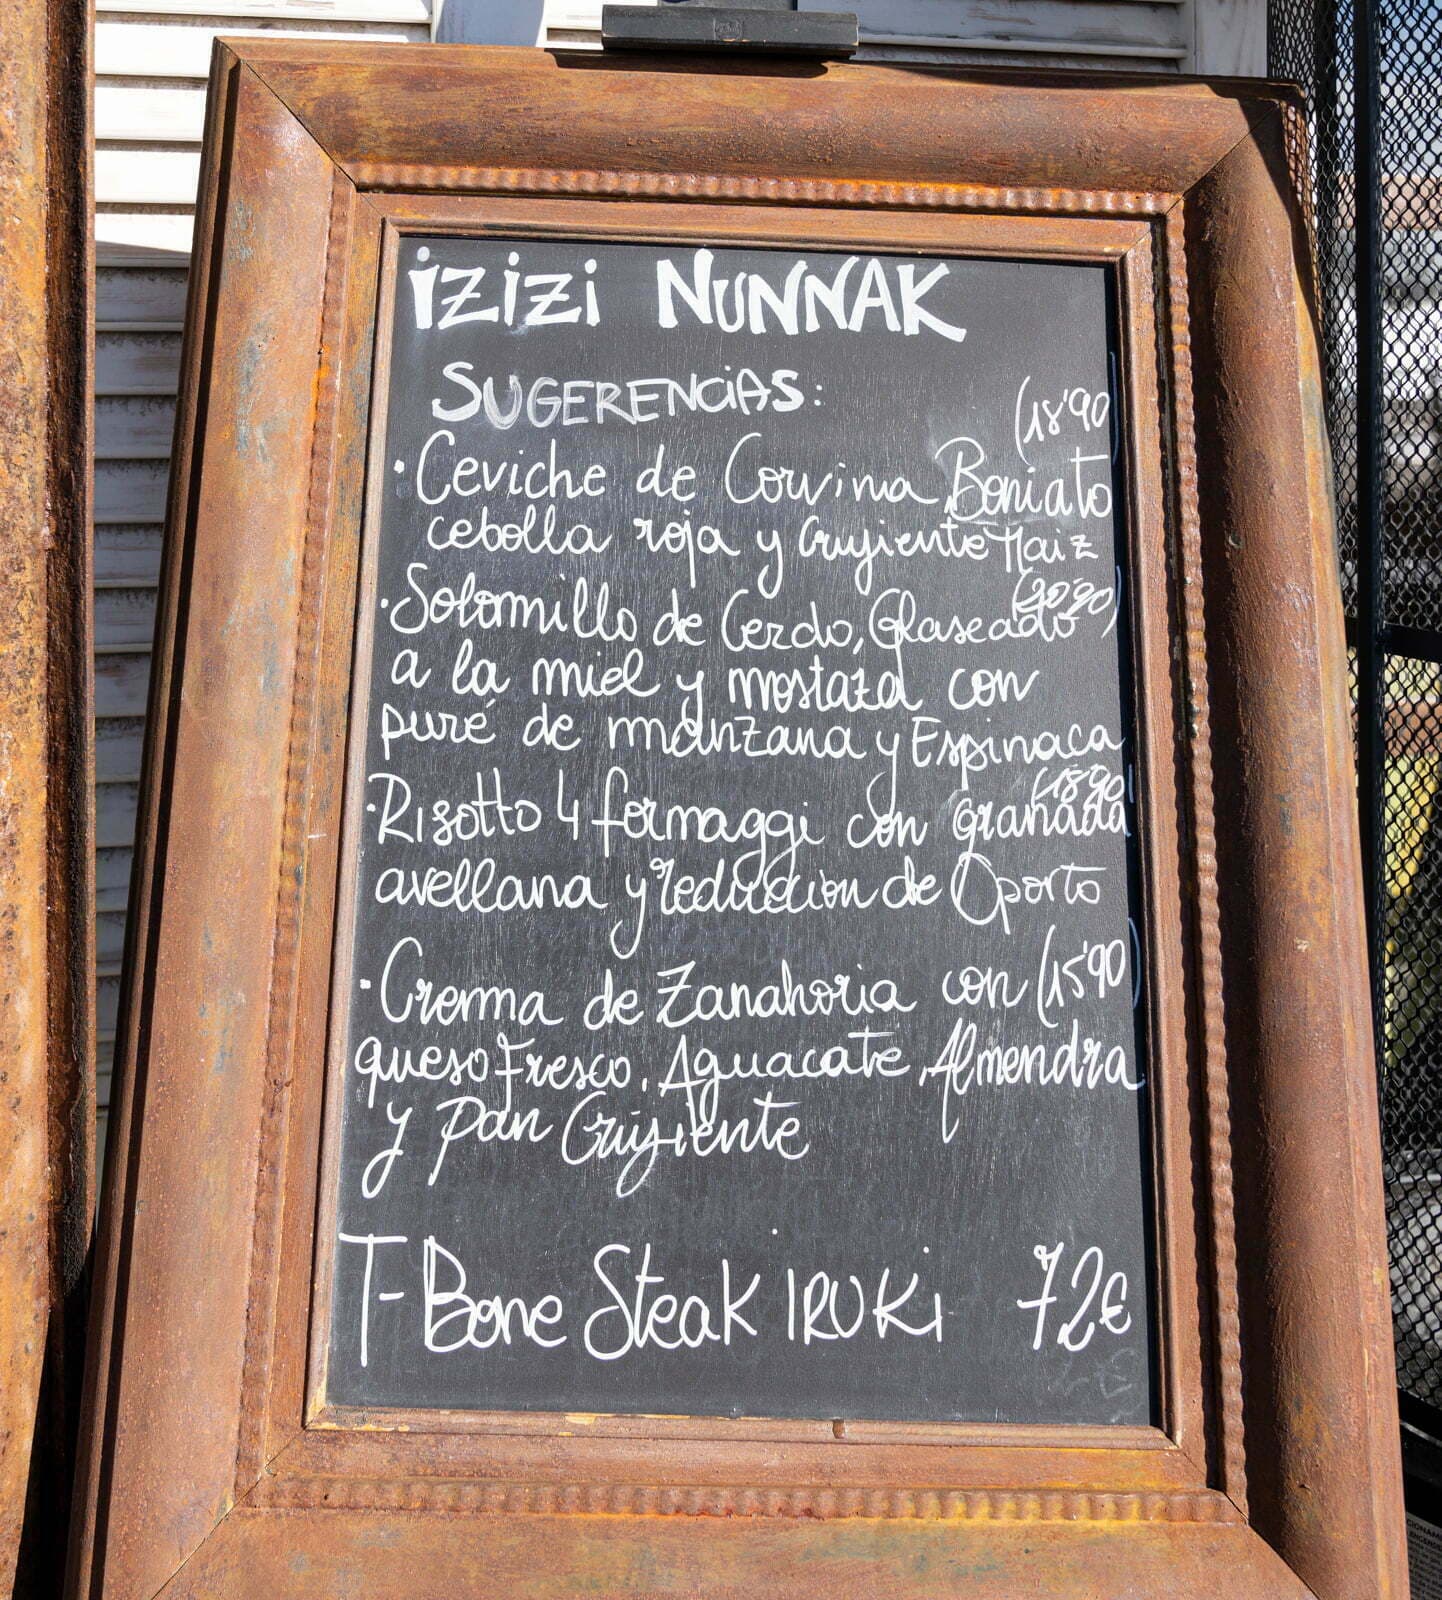 iZiZi NUNNAK
SUGERENCIAS:
(18'90
· Ceviche de Corvina, Boniato
cebolla roja y Crujiente Maiz
(20'90)
· Solomillo de Cerdo, Glaseado
a la miel y mostaza con
puré de manzana y Espinaca
(18'90
· Risotto 4 formaggi con granada
avellana y reduccion de Oporto
· Crema de Zanahoria con (15'90
queso Fresco, Aguacate, Almendra
y pan Crujiente
T-Bone Steak IRUKi 72€